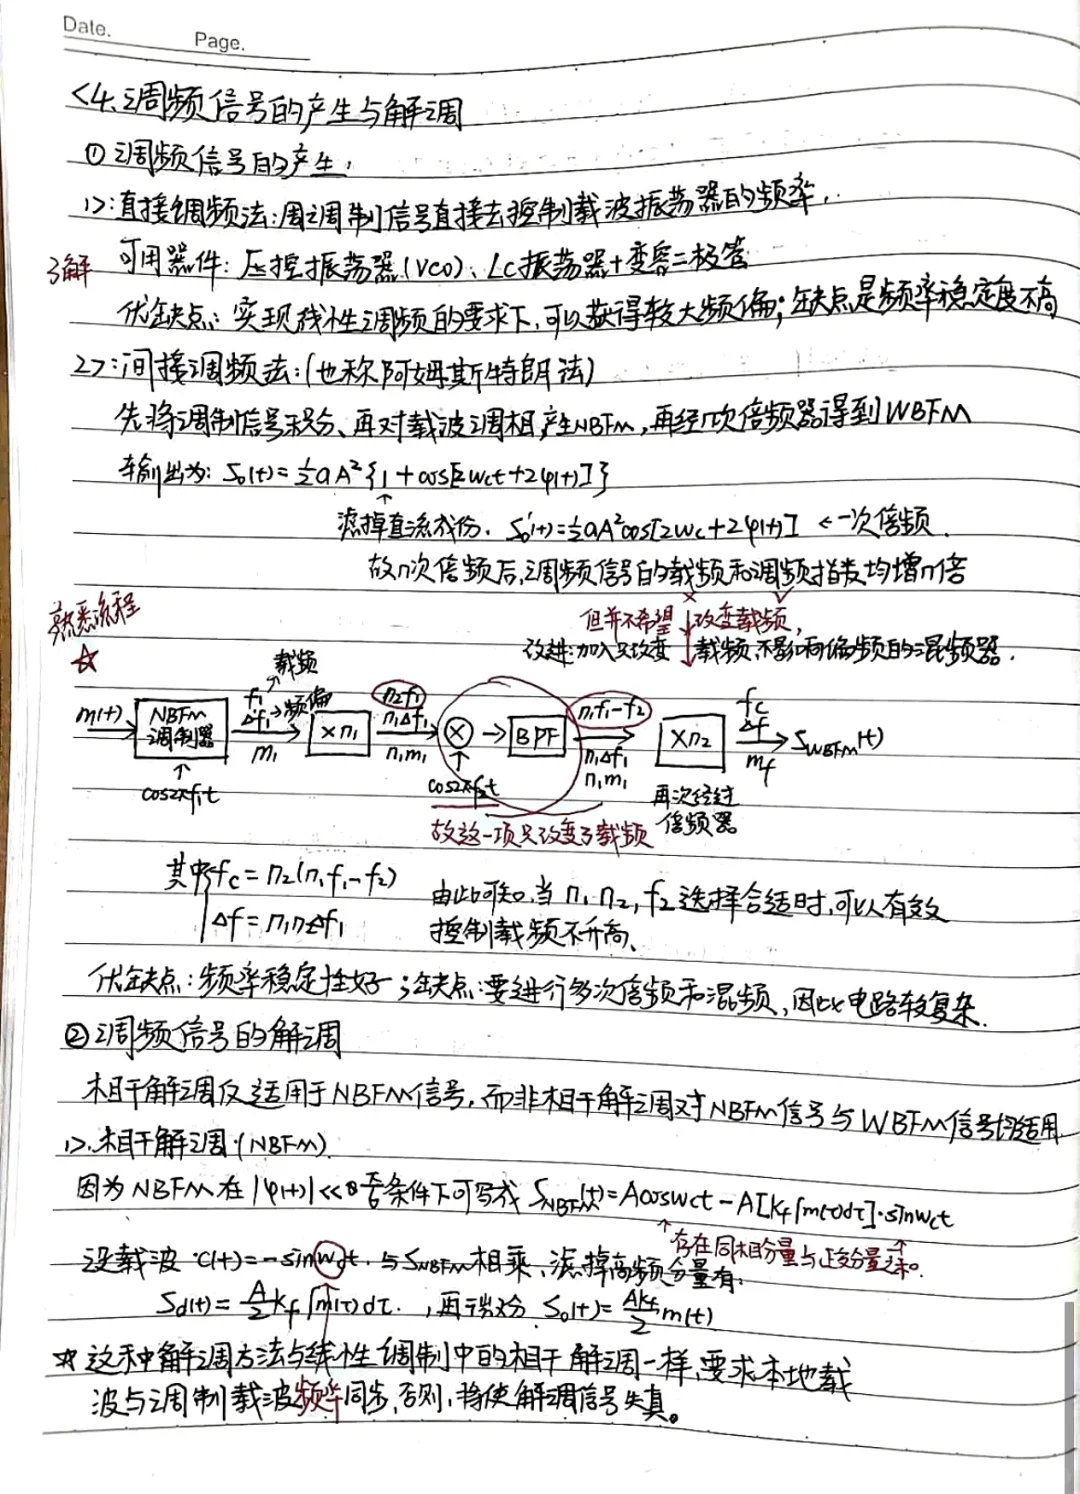 Date.
Page.
<4、调频信号的产生与解调
①调频信号的产生.
1>:直接调频法:用调制信号直接去控制载波振荡器的频率.
了解
可用器件:压控振荡器(VCO)、LC振荡器+变容二极管
优缺点:实现线性调频的要求下,可以获得较大频偏;缺点是频率稳定度不高
2>:间接调频法:(也称阿姆斯特朗法)
先将调制信号积分、再对载波调相,产生NBFM,再经n次倍频器得到WBFM
输出为: S₀(t)=½aA²{1+cos[2wct+2φ(t)]}
↑
滤掉直流成份. S₀'(t)=½aA²cos[2wc+2φ(t)] ←一次倍频.
故n次倍频后,调频信号的载频和调频指数均增n倍
熟悉流程
☆
× ✓
但并不希望 改变载频,
改进:加入只改变 载频,不影响偏频的混频器.
载频
f₁ 频偏
Δf₁
m₁
m(t)
NBFM
调制器
cos2πf₁t
×n₁
n₂f₁
n₁Δf₁
n₁m₁
⊗ → BPF
cos2πf₂t
n₁f₁-f₂
n₁Δf₁
n₁m₁
×n₂
再次经过
倍频器
fc
Δf
mf
S_WBFM(t)
故这一项只改变了载频
其中 fc = n₂(n₁f₁-f₂)
Δf = n₁n₂Δf₁
由此可知,当n₁.n₂,f₂选择合适时,可以有效
控制载频不升高、
优缺点:频率稳定性好;缺点:要进行多次倍频和混频,因此电路较复杂.
②调频信号的解调
相干解调仅适用于NBFM信号,而非相干解调对NBFM信号与WBFM信号均适用
1>.相干解调(NBFM)
因为NBFM在|φ(t)|<<π/6条件下可写成 S_NBFM(t)=Acoswct-A[kf∫m(τ)dτ]·sinwct
↑存在同相分量与正交分量之和.
设载波 C(t)=-sinwct.与S_NBFM相乘、滤掉高频分量有:
Sd(t)=A/2 kf∫m(τ)dτ. ,再微分 S₀(t)=Akf/2 m(t)
☆ 这种解调方法与线性调制中的相干解调一样,要求本地载
波与调制载波频率同步,否则,将使解调信号失真。